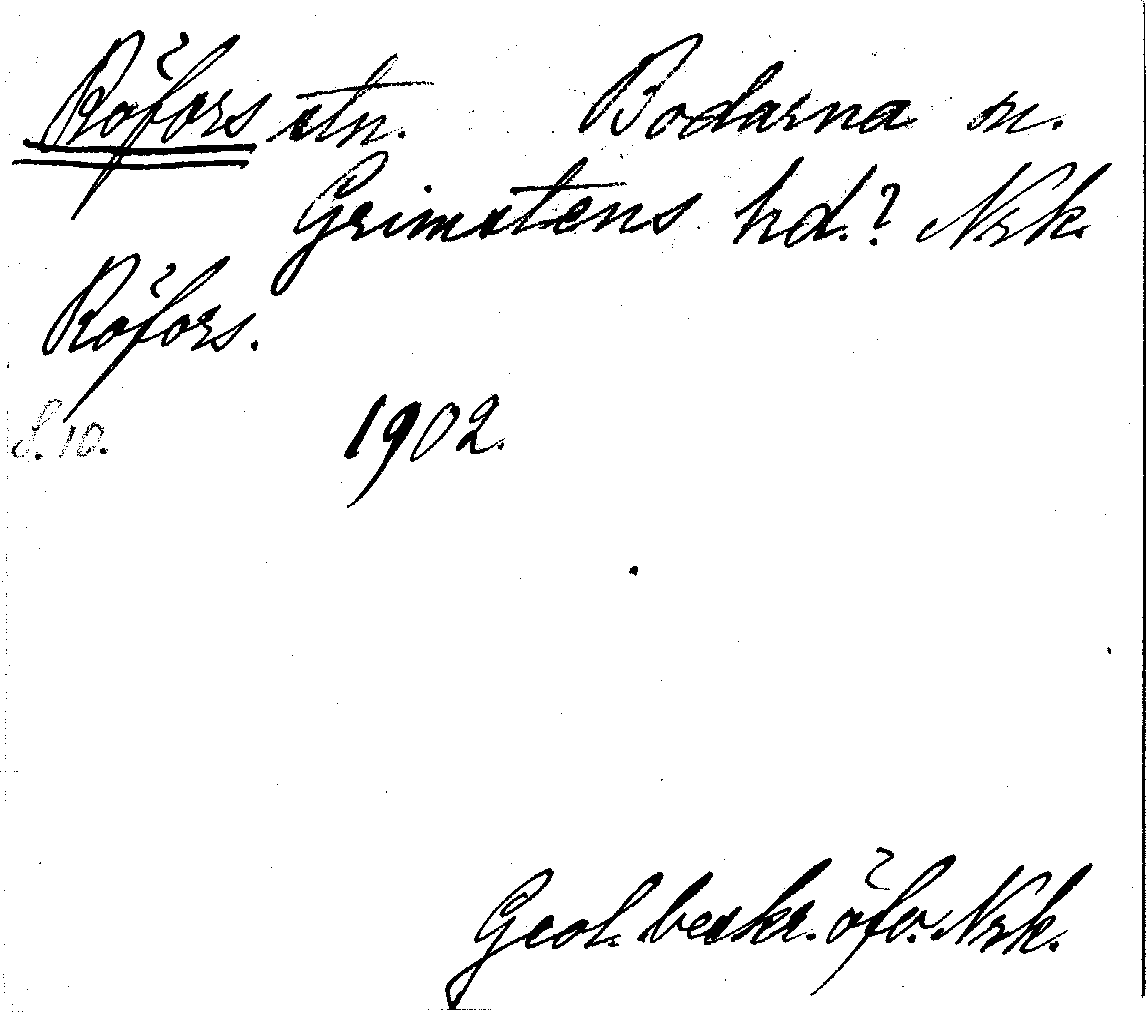 Röfors stn. Bodarna sn.
Grimstens hd.? Nrk.
Röfors.
S. 10. 1902.
Geol. beskr. öfv. Nrk.